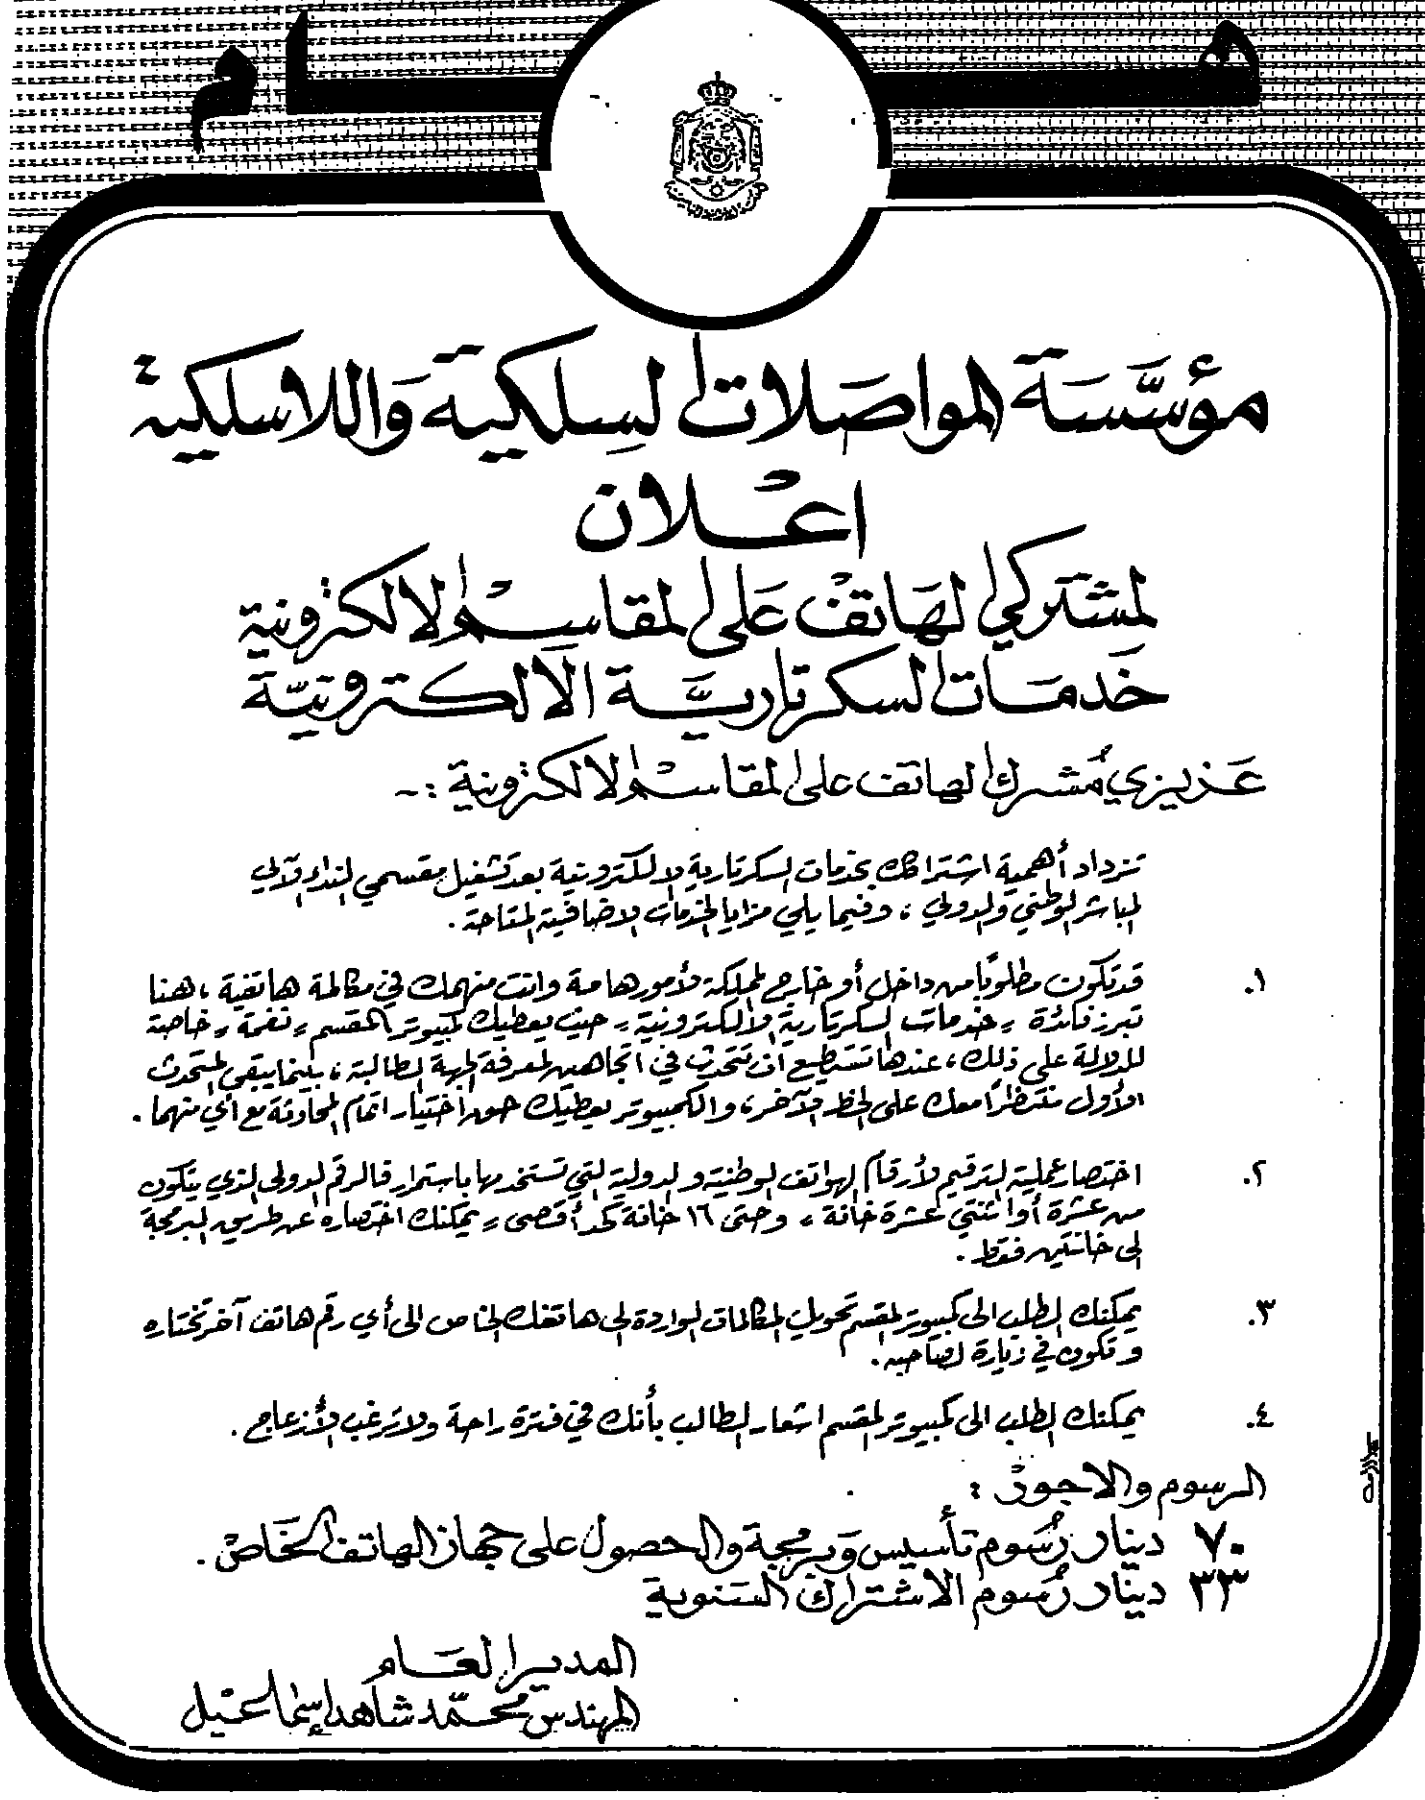 هــــام
مؤسَّسَة المواصَلات السلكية وَاللاسلكية
اعْـلان
لمشتركي الهَاتف عَلى المقاسـم الالكترونية
خَدمَـات السكرتاريَّـة الالكـترونيَّة
عَـزيزي مُشـترك الهاتف على المقاسـم الالكترونية :-
تزداد أهمية اشتراكك بخدمات السكرتارية الالكترونية بعد تشغيل مقسمي النداء الآلي
المباشر الوطني والدولي ، وفيما يلي مزايا الخدمات الاضافية المتاحة .
١. قد تكون مطلوبًا من داخل أو خارج المملكة لأمور هامة وانت منهمك في مكالمة هاتفية ، هنا
تبرز فائدة " خدمات السكرتارية الالكترونية " حيث يعطيك كمبيوتر المقسم " نغمة " خاصة
للدلالة على ذلك ، عندها تستطيع أن تتحدث في اتجاهين لمعرفة الجهة الطالبة ، بينما يبقى المتحدث
الأول منتظراً معك على الخط الآخر ، والكمبيوتر يعطيك حق اختيار اتمام المحادثة مع أي منهما .
٢. اختصار عملية الترقيم لأرقام الهواتف الوطنية والدولية التي تستخدمها باستمرار فالرقم الدولى الذي يتكون
من عشرة أو اثنتي عشرة خانة ، وحتى ١٦ خانة كحد أقصى " يمكنك اختصاره عن طريق البرمجة
الى خانتين فقط .
٣. يمكنك الطلب الى كمبيوتر المقسم تحويل المكالمات الواردة الى هاتفك الخاص الى أي رقم هاتف آخر تختاره
وتكون في زيارة لصاحبه .
٤. يمكنك الطلب الى كمبيوتر المقسم اشعار الطالب بأنك في فترة راحة ولا ترغب الأزعاج .
الرسوم والاجور :
٧٠ دينار رُسوم تأسيس وَبرمجة والحصول على جهاز الهاتف الخَاص .
٣٣ دينار رُسوم الاشتراك السَنوية
المدير العَـام
المهندس محمّد شاهد إسماعيل